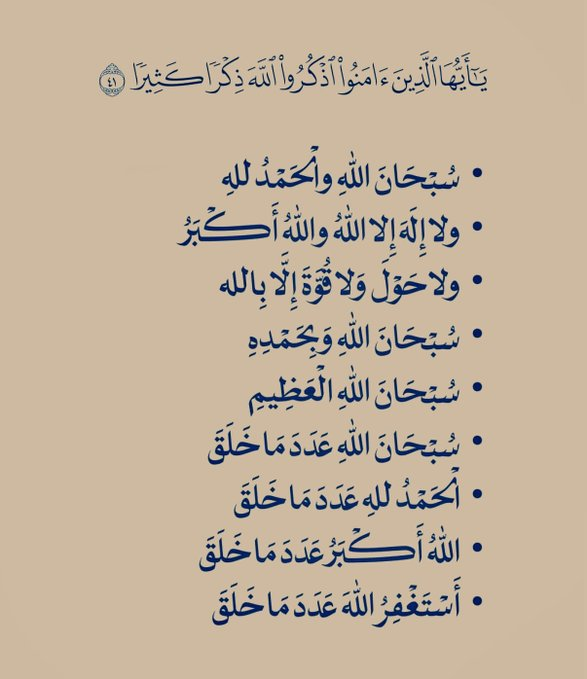 يَـٰٓأَيُّهَا ٱلَّذِينَ ءَامَنُوا۟ ٱذْكُرُوا۟ ٱللَّهَ ذِكْرًا كَثِيرًا ٤١
• سُبْحَانَ اللهِ والْحَمْدُ للهِ
• ولا إِلَهَ إِلا اللهُ واللهُ أَكْبَرُ
• ولا حَوْلَ وَلا قُوَّةَ إِلَّا بِالله
• سُبْحَانَ اللهِ وَبِحَمْدِهِ
• سُبْحَانَ اللهِ الْعَظِيمِ
• سُبْحَانَ اللهِ عَدَدَ مَا خَلَقَ
• الْحَمْدُ للهِ عَدَدَ مَا خَلَقَ
• اللهُ أَكْبَرُ عَدَدَ مَا خَلَقَ
• أَسْتَغْفِرُ اللهَ عَدَدَ مَا خَلَقَ